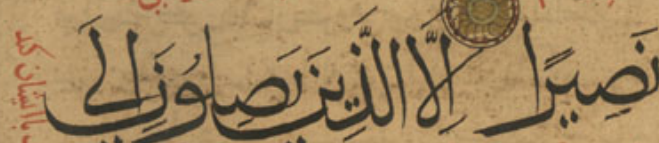 نَصِيرًا إِلَّا الَّذِينَ يَصِلُونَ إِلَى